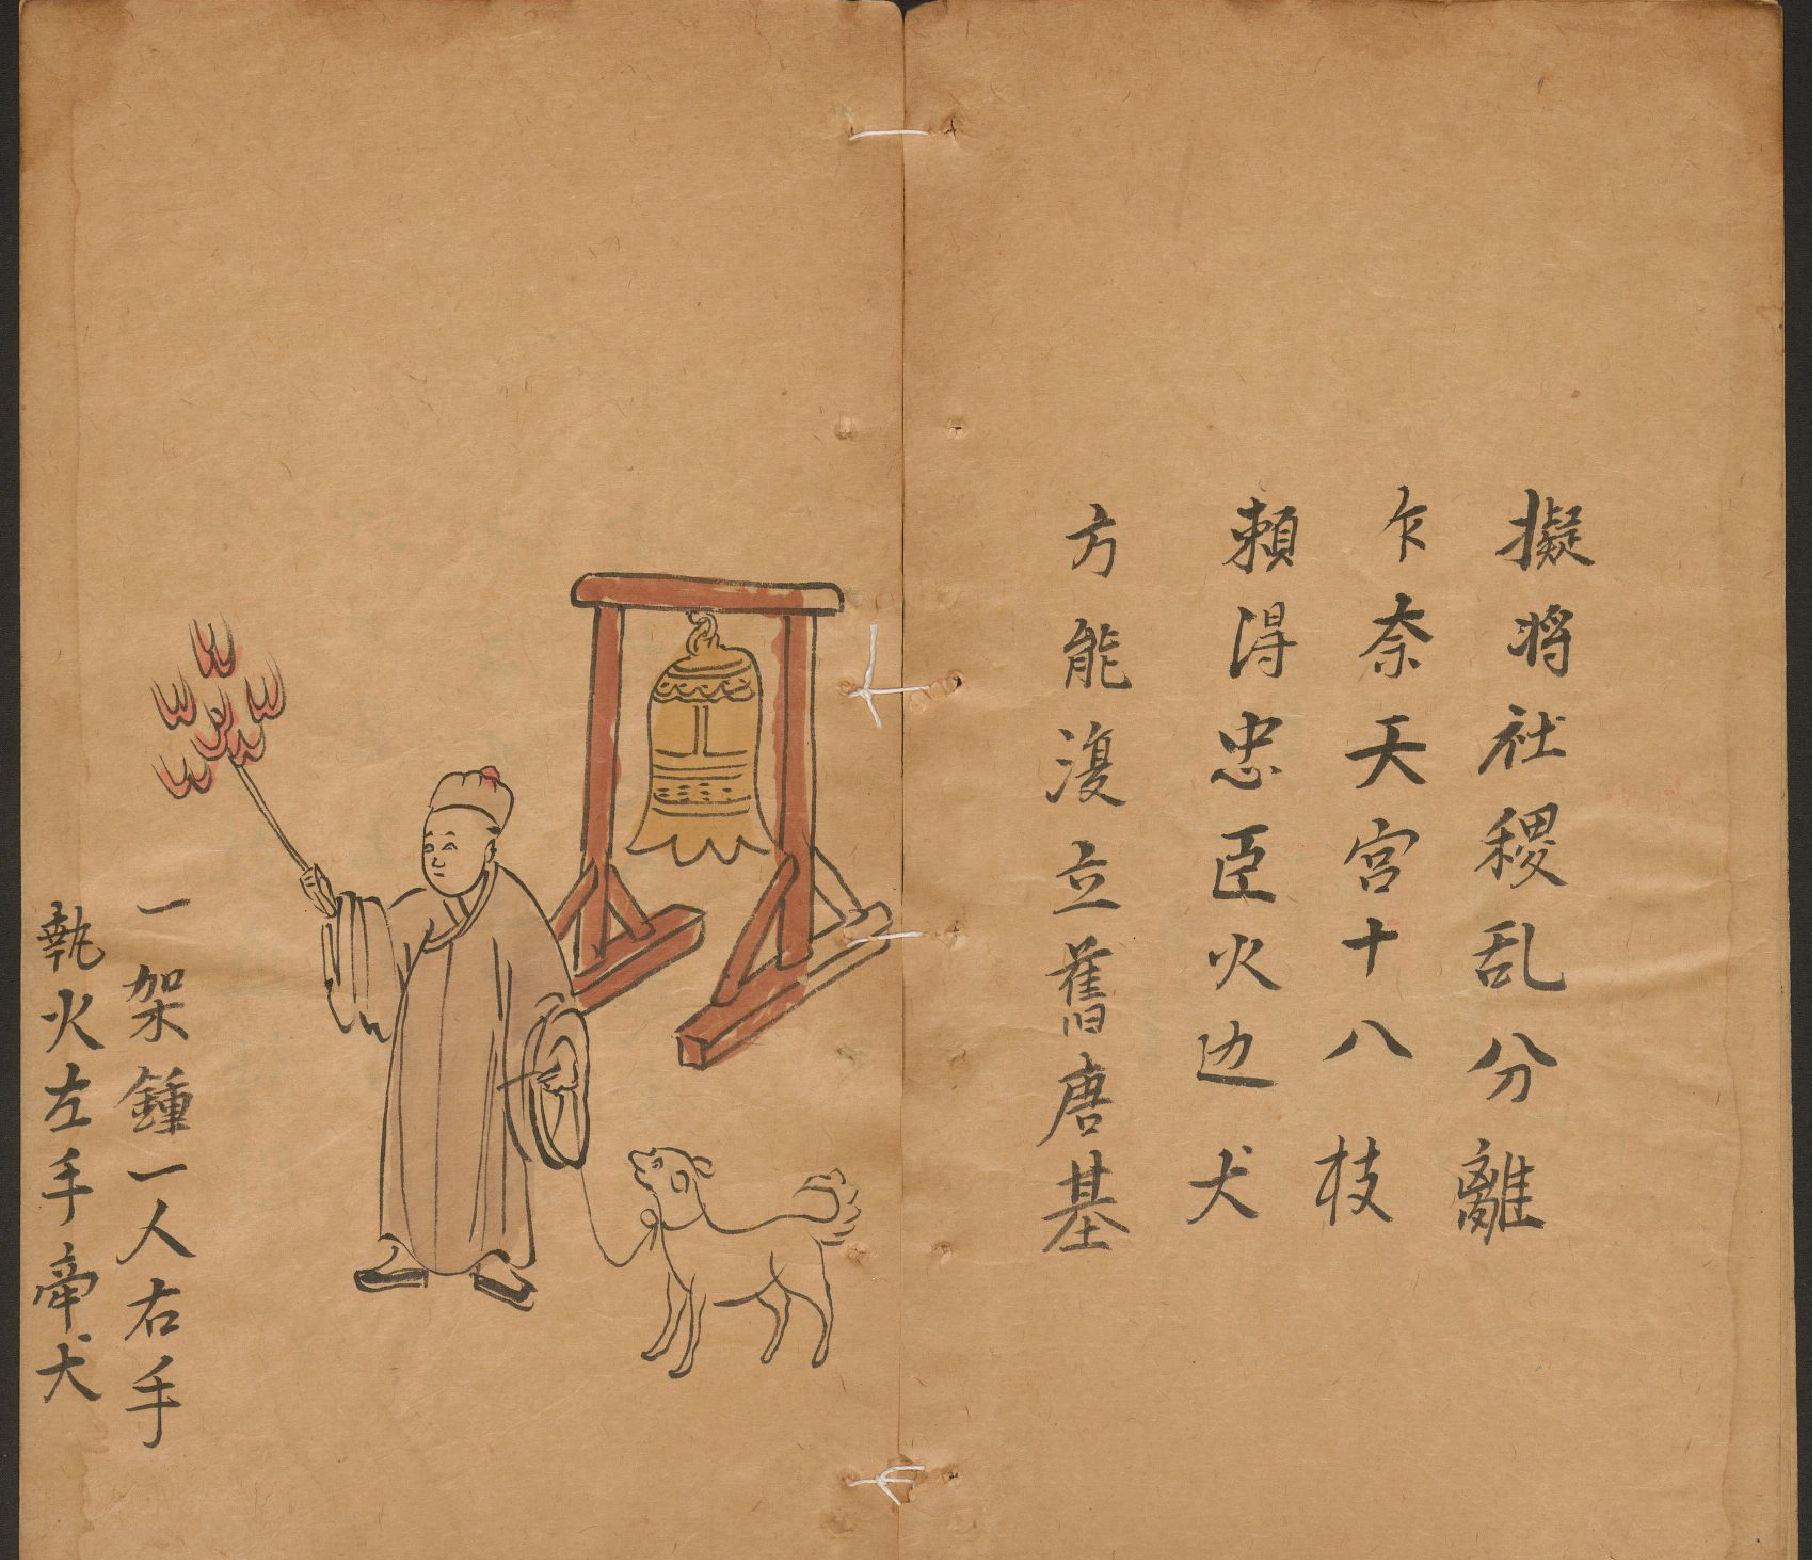 擬将社稷乱分離
乍奈天宮十八枝
頼淂忠臣火边犬
方能漫立舊唐基
一架鍾一人右手
執火左手牽犬